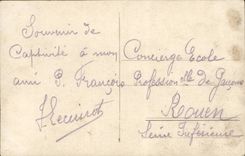 Souvenir de
Captivité à mon
ami P. François
Concierge École
Profession lle de Garçons
Rouen
Seine Inférieure